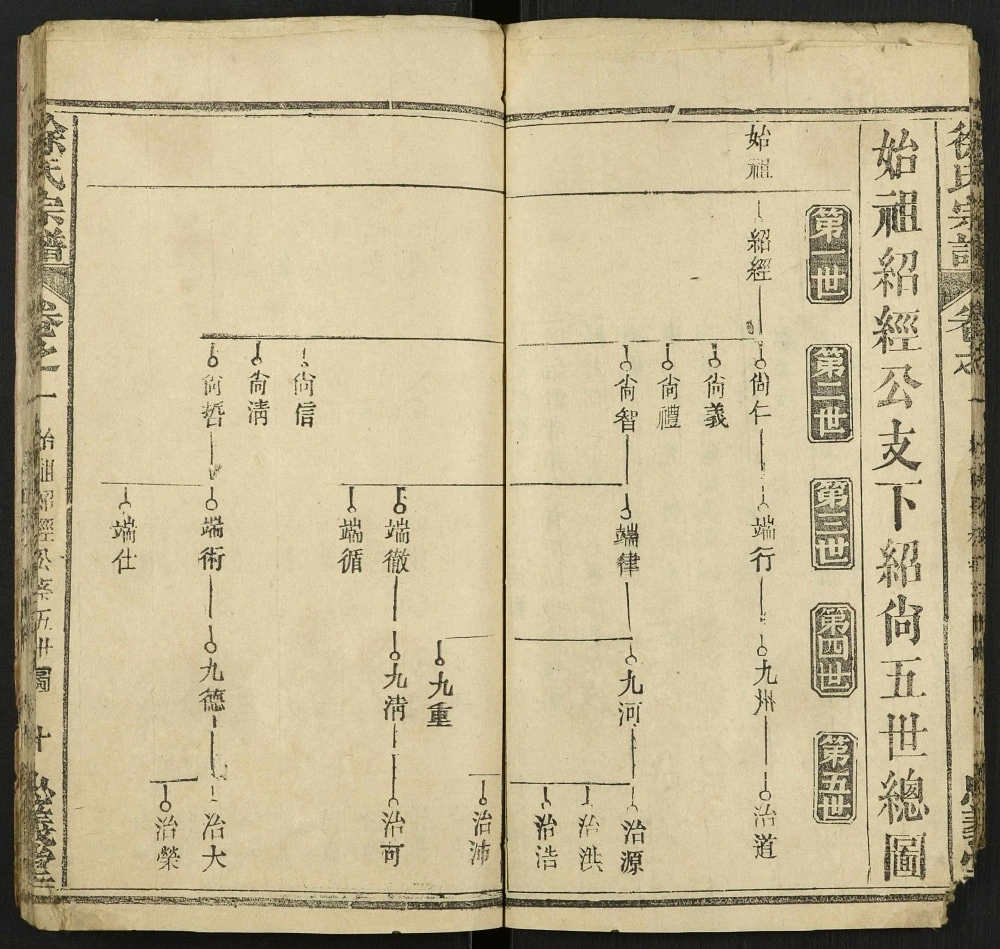 始祖紹經公支下紹尙五世總圖
第一世
第二世
第三世
第四世
第五世
始祖
紹經
尙仁
端行
九州
治道
尙義
尙禮
尙智
端律
九河
治源
治洪
治浩
治沛
九重
端徹
九淸
治可
端循
尙信
尙淸
尙哲
端術
九德
治大
治榮
端仕
徐氏宗譜
卷之一
始祖紹經公系五世圖
十